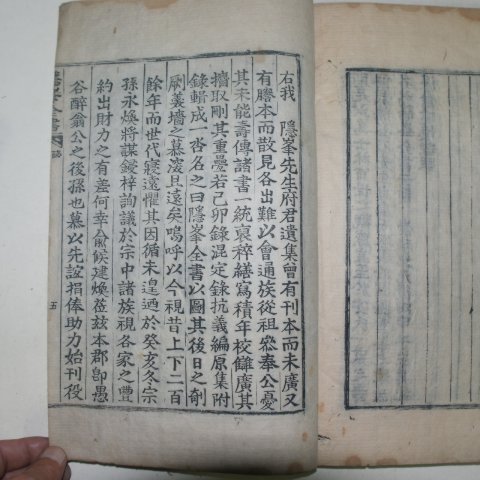 右我 隱峯先生府君遺集曾有刊本而未廣又
有謄本而散見各出難以會通族從祖參奉公憂
其未能壽傳諸書一統裒稡繕寫積年校讎廣其
攟取刪其重疊若己卯錄混定錄抗義編原集附
錄輯成一沓名之曰隱峯全書以圖其後日之剞
劂羹墻之慕深且遠矣嗚呼以今視昔上下二百
餘年而世代寢遠懼其因循未遑迺於癸亥冬宗
孫永煥將謀鋟梓詢議於宗中諸族視各家之豊
約出財力之有差何幸兪候建煥莅玆本郡卽愚
谷醉翁公之後孫也慕以先誼捐俸助力始刊役
全書
五